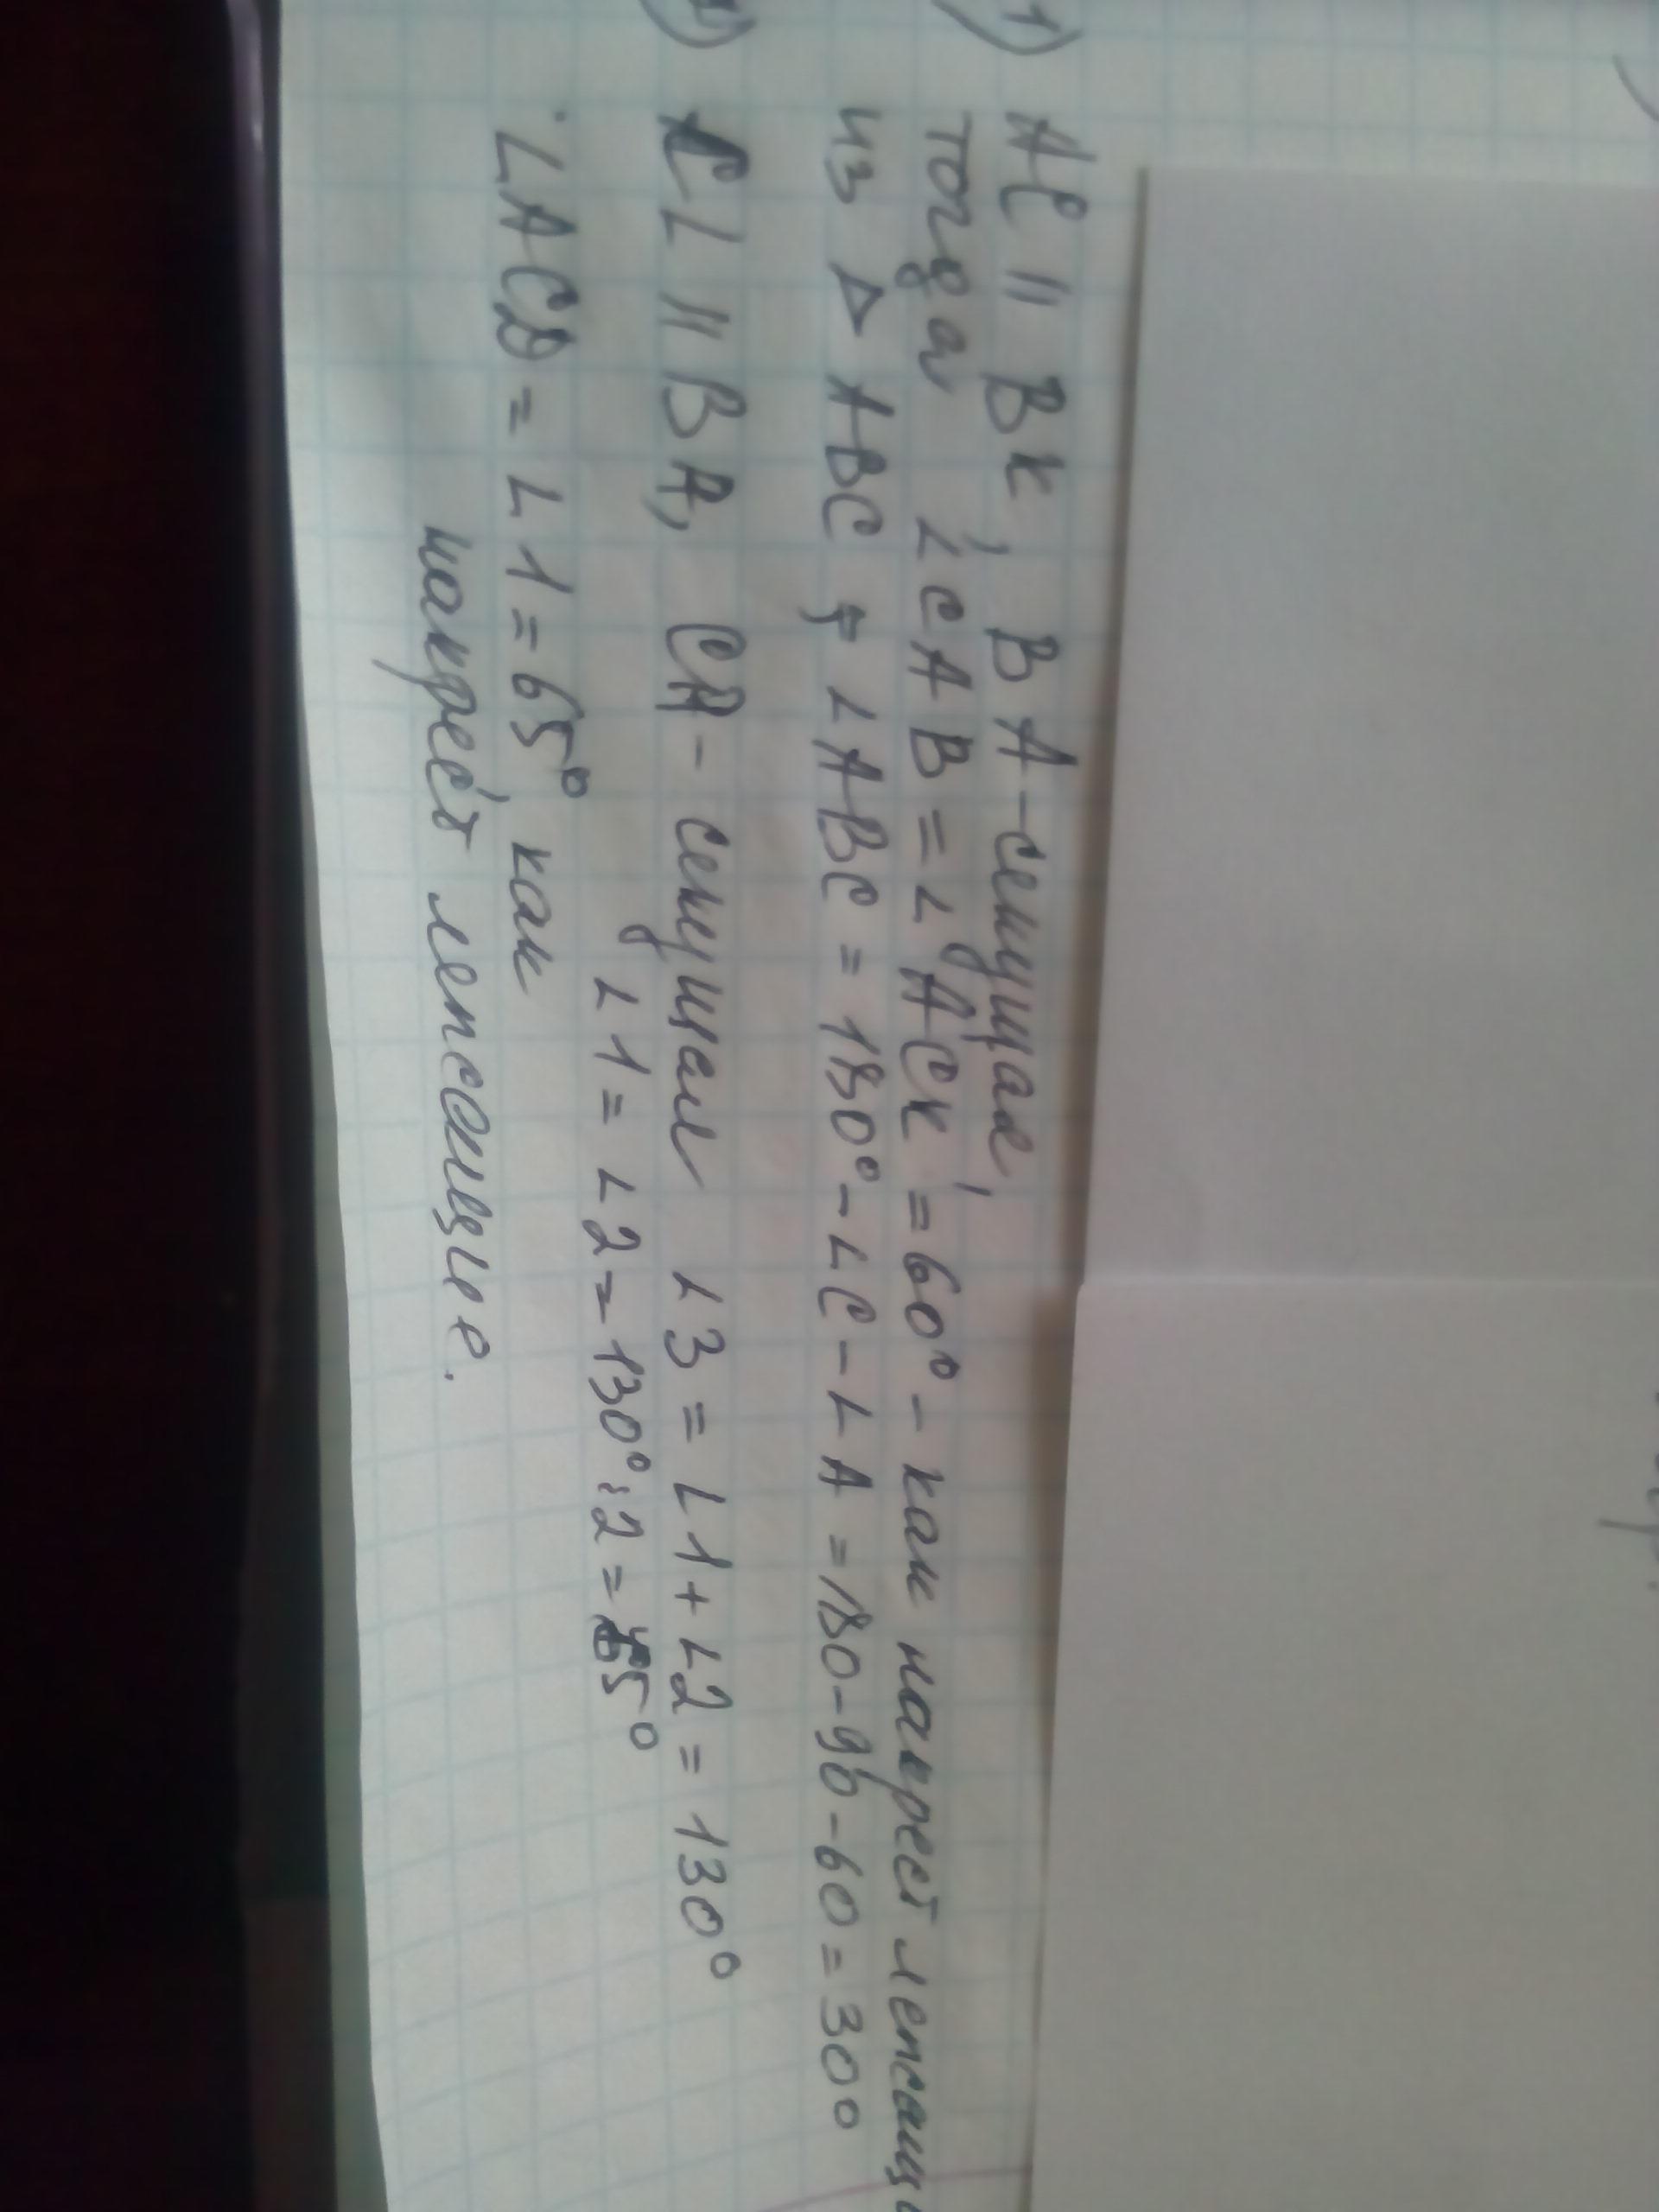 1) AC || BK, BA - секущая,
тогда ∠CAB = ∠ACK = 60° - как накрест лежащ
из △ ABC ; ∠ABC = 180° - ∠C - ∠A = 180-90-60=30°
2) CL || BA, CA - секущая ∠3 = ∠1 + ∠2 = 130°
∠1 = ∠2 = 130° : 2 = 65°
∠ACD = ∠1 = 65° как
накрест лежащие.